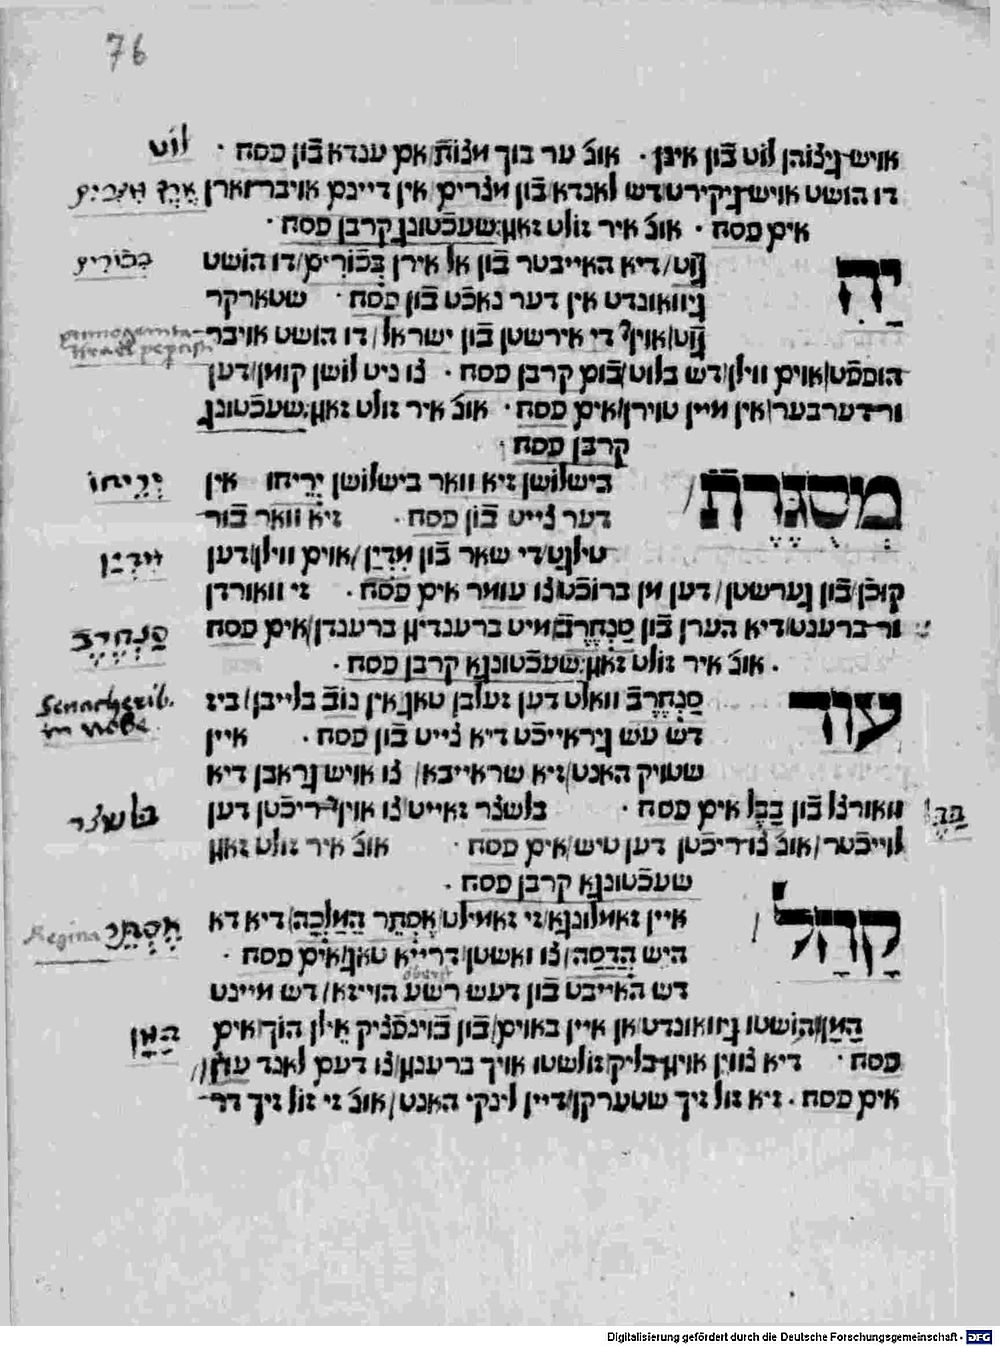 76
לוט
אויש גיצוהן לוט בֿון אינן · אונ' ער בוך מצות אם ענדא בֿון פסח ·
דו הושט אויש גיקירט דש לאנדא בֿון מצרים אין דיינם אויבר וארן
אים פסח · אונ' איר זולט זאגן שעכֿטונג קרבן פסח ·
יָהּ
גוט דיא האייבטר בֿון אל אירן בְּכוֹרִים דו הושט
בכורים
גיוואונדט אין דער נאכֿט בֿון פסח · שטארקר
גוט אוין די אירשטן בֿון ישראל דו הושט אויבר
primogenita
הופפט אוים ווילן דש בלוט בֿום קרבן פסח · צו ניט לושן קומן דען
ור דערבער אין מיין טוירן אים פסח · אונ' איר זולט זאגן שעכֿטונג
קרבן פסח
מְסֻגֶּרֶת
בישלושן זיא וואר בישלושן יְרִיחוֹ אין
יְרִיחוֹ
דער צייט בֿון פסח · זיא וואר בֿור
טילגט די שאר בֿון מִדְיָן אוים ווילן דען
מִדְיָן
קוכֿן בֿון גערשטן דען מן ברוכֿט צו עומר אים פסח · זי וואורדן
ור ברענט דיא הערן בֿון סַנְחֵרִב מיט ברענדיגן ברענדן אים פסח
סַנְחֵרִב
אונ' איר זולט זאגן שעכֿטונגא קרבן פסח ·
עוֹד
סַנְחֵרִב וואלט דען זעלבן טאג אין נוֹב בלייבן ביז
Senacherib
in nobe
דש עש גיראייכֿט דיא צייט בֿון פסח · איין
שטויק האנט זיא שראייבא צו אויש גראבן דיא
וואורצל בֿון בָּבֶל אים פסח · בלשצר זאייט צו אוין ריכֿטן דען
בָּבֶל
בלשצר
לוייכֿטר אונ' צו ריכֿטן דען טיש אים פסח · אונ' איר זולט זאגן
שעכֿטונגא קרבן פסח ·
קָהָל
איין זאמלונגא זי זאמילט אֶסְתֵּר הַמַּלְכָּה דיא דא
אֶסְתֵּר
Regina
היש הֲדַסָּה צו ואשטן דרייא טאג אים פסח ·
דש האייבט בֿון דעש רשע הויזא דש מיינט
הָמָן הושטו גיוואונדט אן איין באוים בֿון בֿוינפֿציק אֵילן הוך אים
הָמָן
פסח · דיא צוויין אוין בליק זולשטו אויך ברענגן צו דעם לאנד
אים פסח · זיא זול זיך שטערקן דיין לינקי האנט אונ' זי זול זיך דר
Digitalisierung gefördert durch die Deutsche Forschungsgemeinschaft · DFG